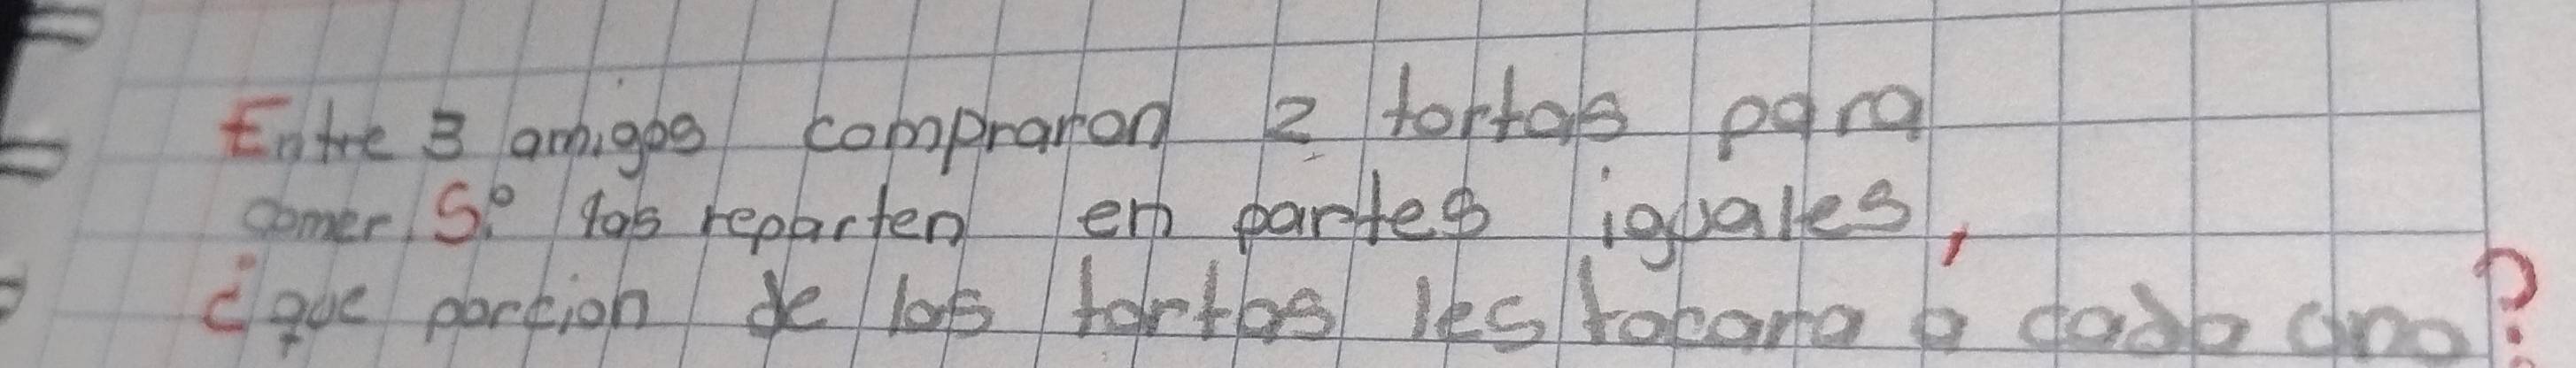 Entre 3 amigos compraron 2 tortas para
comer Si las reparten en partes iguales,
¿que porcion de las tortas les tocara a cada uno?